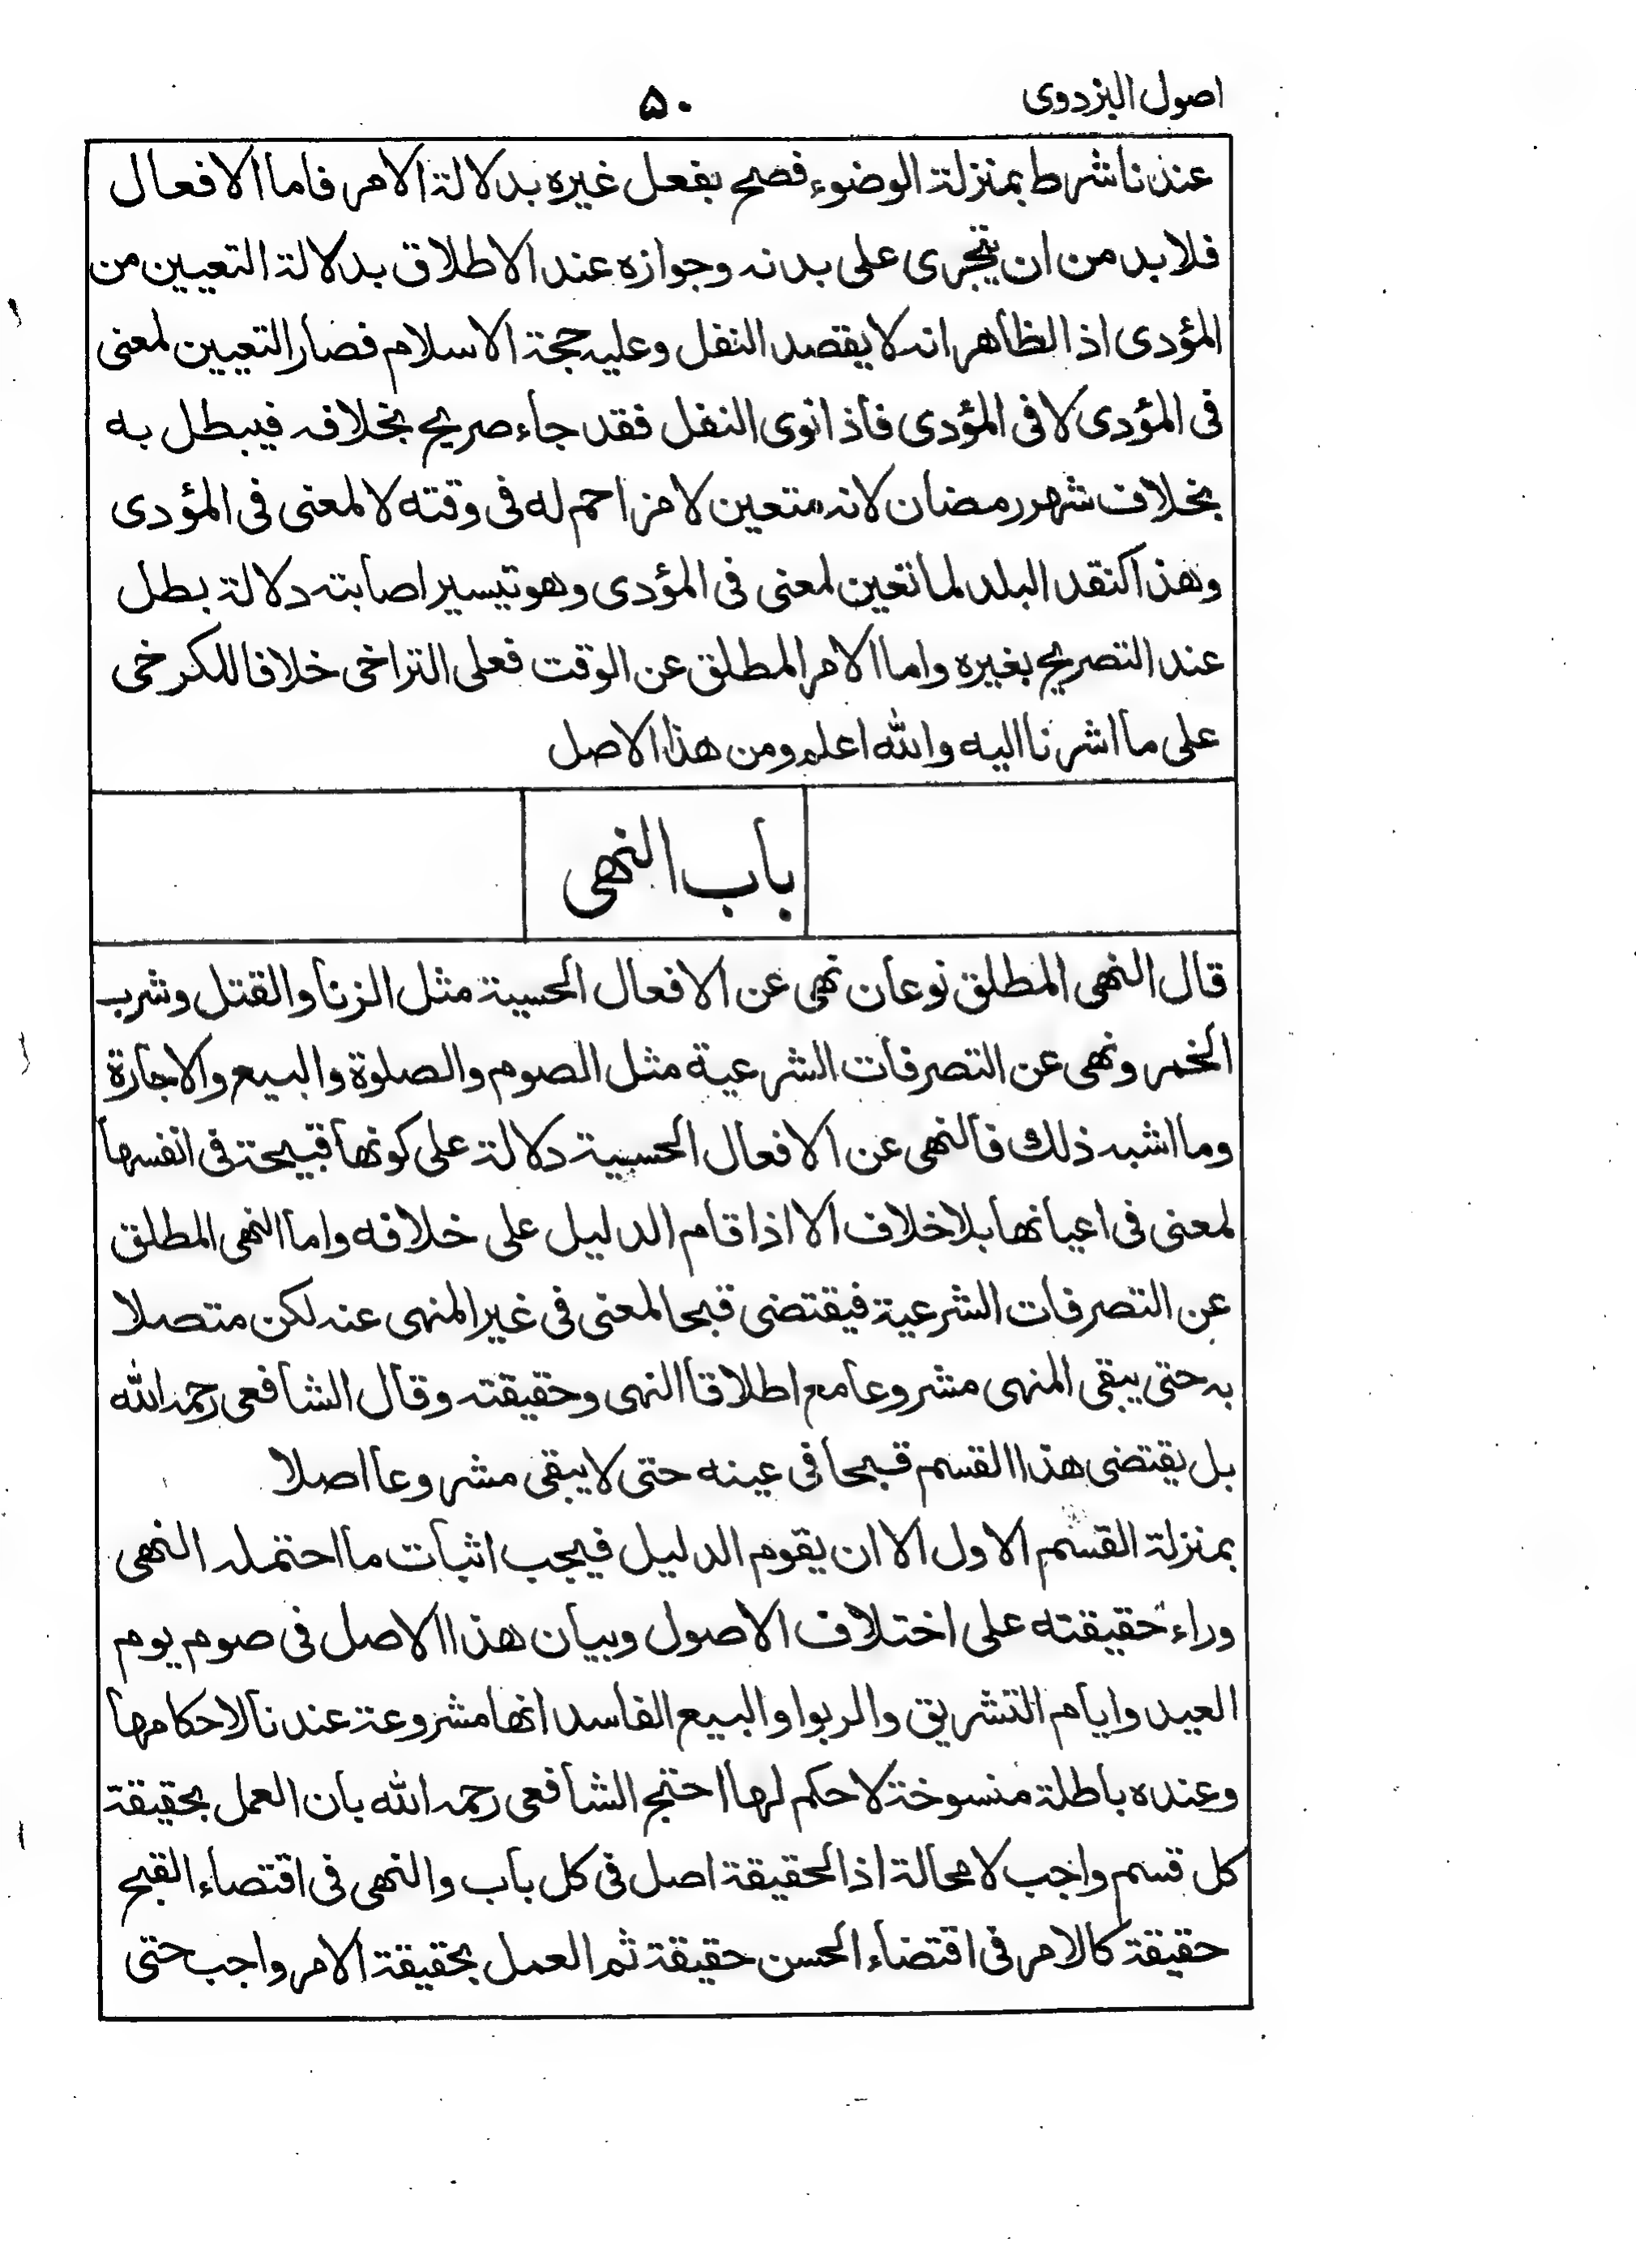 اصول البزدوى
٥٠
عندنا شرط بمنزلة الوضوء فصح بفعل غيره بدلالة الامر فاما الافعال
فلا بد من ان يجرى على بدنه وجوازه عند الاطلاق بدلالة التعيين من
المؤدى اذ الظاهر انه لا يقصد النفل وعليه حجة الاسلام فصار التعيين لمعنى
فى المؤدى لا فى المؤدى فاذا نوى النفل فقد جاء صريح بخلافه فيبطل به
بخلاف شهر رمضان لانه متعين لا مزاحم له فى وقته لا لمعنى فى المؤدى
وهذا كنقد البلد لما تعين لمعنى فى المؤدى وهو تيسير اصابته دلالة بطل
عند التصريح بغيره واما الامر المطلق عن الوقت فعلى التراخى خلافا للكرخى
على ما اشرنا اليه والله اعلم ومن هذا الاصل
باب النهى
قال النهى المطلق نوعان نهى عن الافعال الحسية مثل الزنا والقتل وشرب
الخمر ونهى عن التصرفات الشرعية مثل الصوم والصلوة والبيع والاجارة
وما اشبه ذلك فالنهى عن الافعال الحسية دلالة على كونها قبيحة فى انفسها
لمعنى فى اعيانها بلا خلاف الا اذا قام الدليل على خلافه واما النهى المطلق
عن التصرفات الشرعية فيقتضى قبحا لمعنى فى غير المنهى عنه لكن متصلا
به حتى يبقى المنهى مشروعا مع اطلاق النهى وحقيقته وقال الشافعى رحمه الله
بل يقتضى هذا القسم قبحا فى عينه حتى لا يبقى مشروعا اصلا
بمنزلة القسم الاول الا ان يقوم الدليل فيجب اثبات ما احتمله النهى
وراء حقيقته على اختلاف الاصول وبيان هذا الاصل فى صوم يوم
العيد وايام التشريق والربوا والبيع الفاسد انها مشروعة عندنا لاحكامها
وعنده باطلة منسوخة لا حكم لها احتج الشافعى رحمه الله بان العمل بحقيقة
كل قسم واجب لا محالة اذ الحقيقة اصل فى كل باب والنهى فى اقتضاء القبح
حقيقة كالامر فى اقتضاء الحسن حقيقة ثم العمل بحقيقة الامر واجب حتى